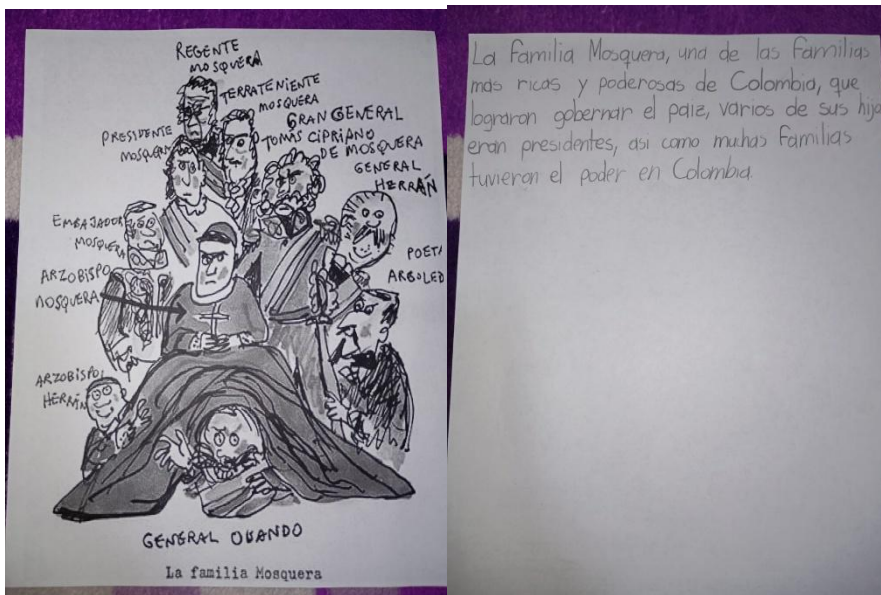 REGENTE
MOSQUERA
TERRATENIENTE
MOSQUERA
PRESIDENTE
MOSQUERA
GRAN GENERAL
TOMÁS CIPRIANO
DE MOSQUERA
GENERAL
HERRÁN
EMBAJADOR
MOSQUERA
POETA
ARBOLED
ARZOBISPO
MOSQUERA
ARZOBISPO
HERRÁN
GENERAL OBANDO
La familia Mosquera
La familia Mosquera, una de las familias
más ricas y poderosas de Colombia, que
lograron gobernar el paiz, varios de sus hijo
eran presidentes, asi como muchas familias
tuvieron el poder en Colombia.